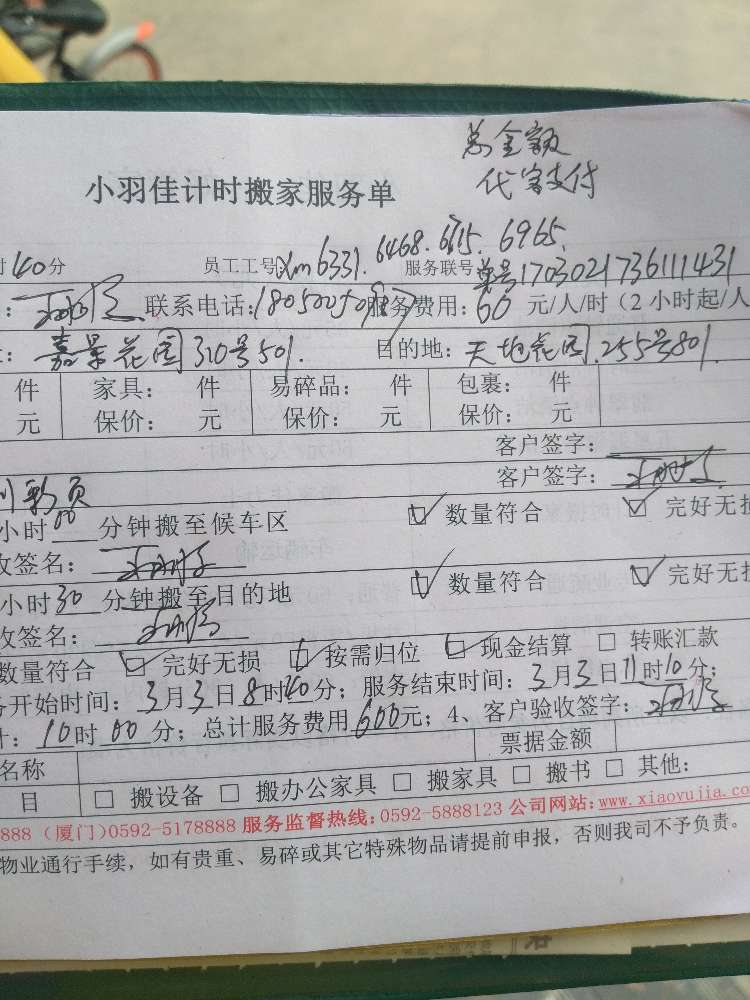 总金额
代客支付
小羽佳计时搬家服务单
时40分 员工工号:Xm6331.6468.6715.6965. 服务联号单号17030217361111431
: 联系电话: 服务费用:60元/人/时(2小时起/人
: 嘉景花园310号501. 目的地:天地花园.255号801.
件 家具: 件 易碎品: 件 包裹: 件
元 保价: 元 保价: 元 保价: 元
客户签字:
客户签字:
小时00分钟搬至候车区 ☑ 数量符合 ☑ 完好无损
收签名:
小时30分钟搬至目的地 ☑ 数量符合 ☑ 完好无
收签名:
数量符合 ☑ 完好无损 ☑ 按需归位 ☑ 现金结算 □ 转账汇款
务开始时间:3月3日8时40分;服务结束时间:3月3日11时10分;
计:10时00分;总计服务费用600元;4、客户验收签字:
票据金额
名称
目 □ 搬设备 □ 搬办公家具 □ 搬家具 □ 搬书 □ 其他:
888(厦门)0592-5178888 服务监督热线:0592-5888123 公司网站:www.xiaoyujia.co
物业通行手续,如有贵重、易碎或其它特殊物品请提前申报,否则我司不予负责。